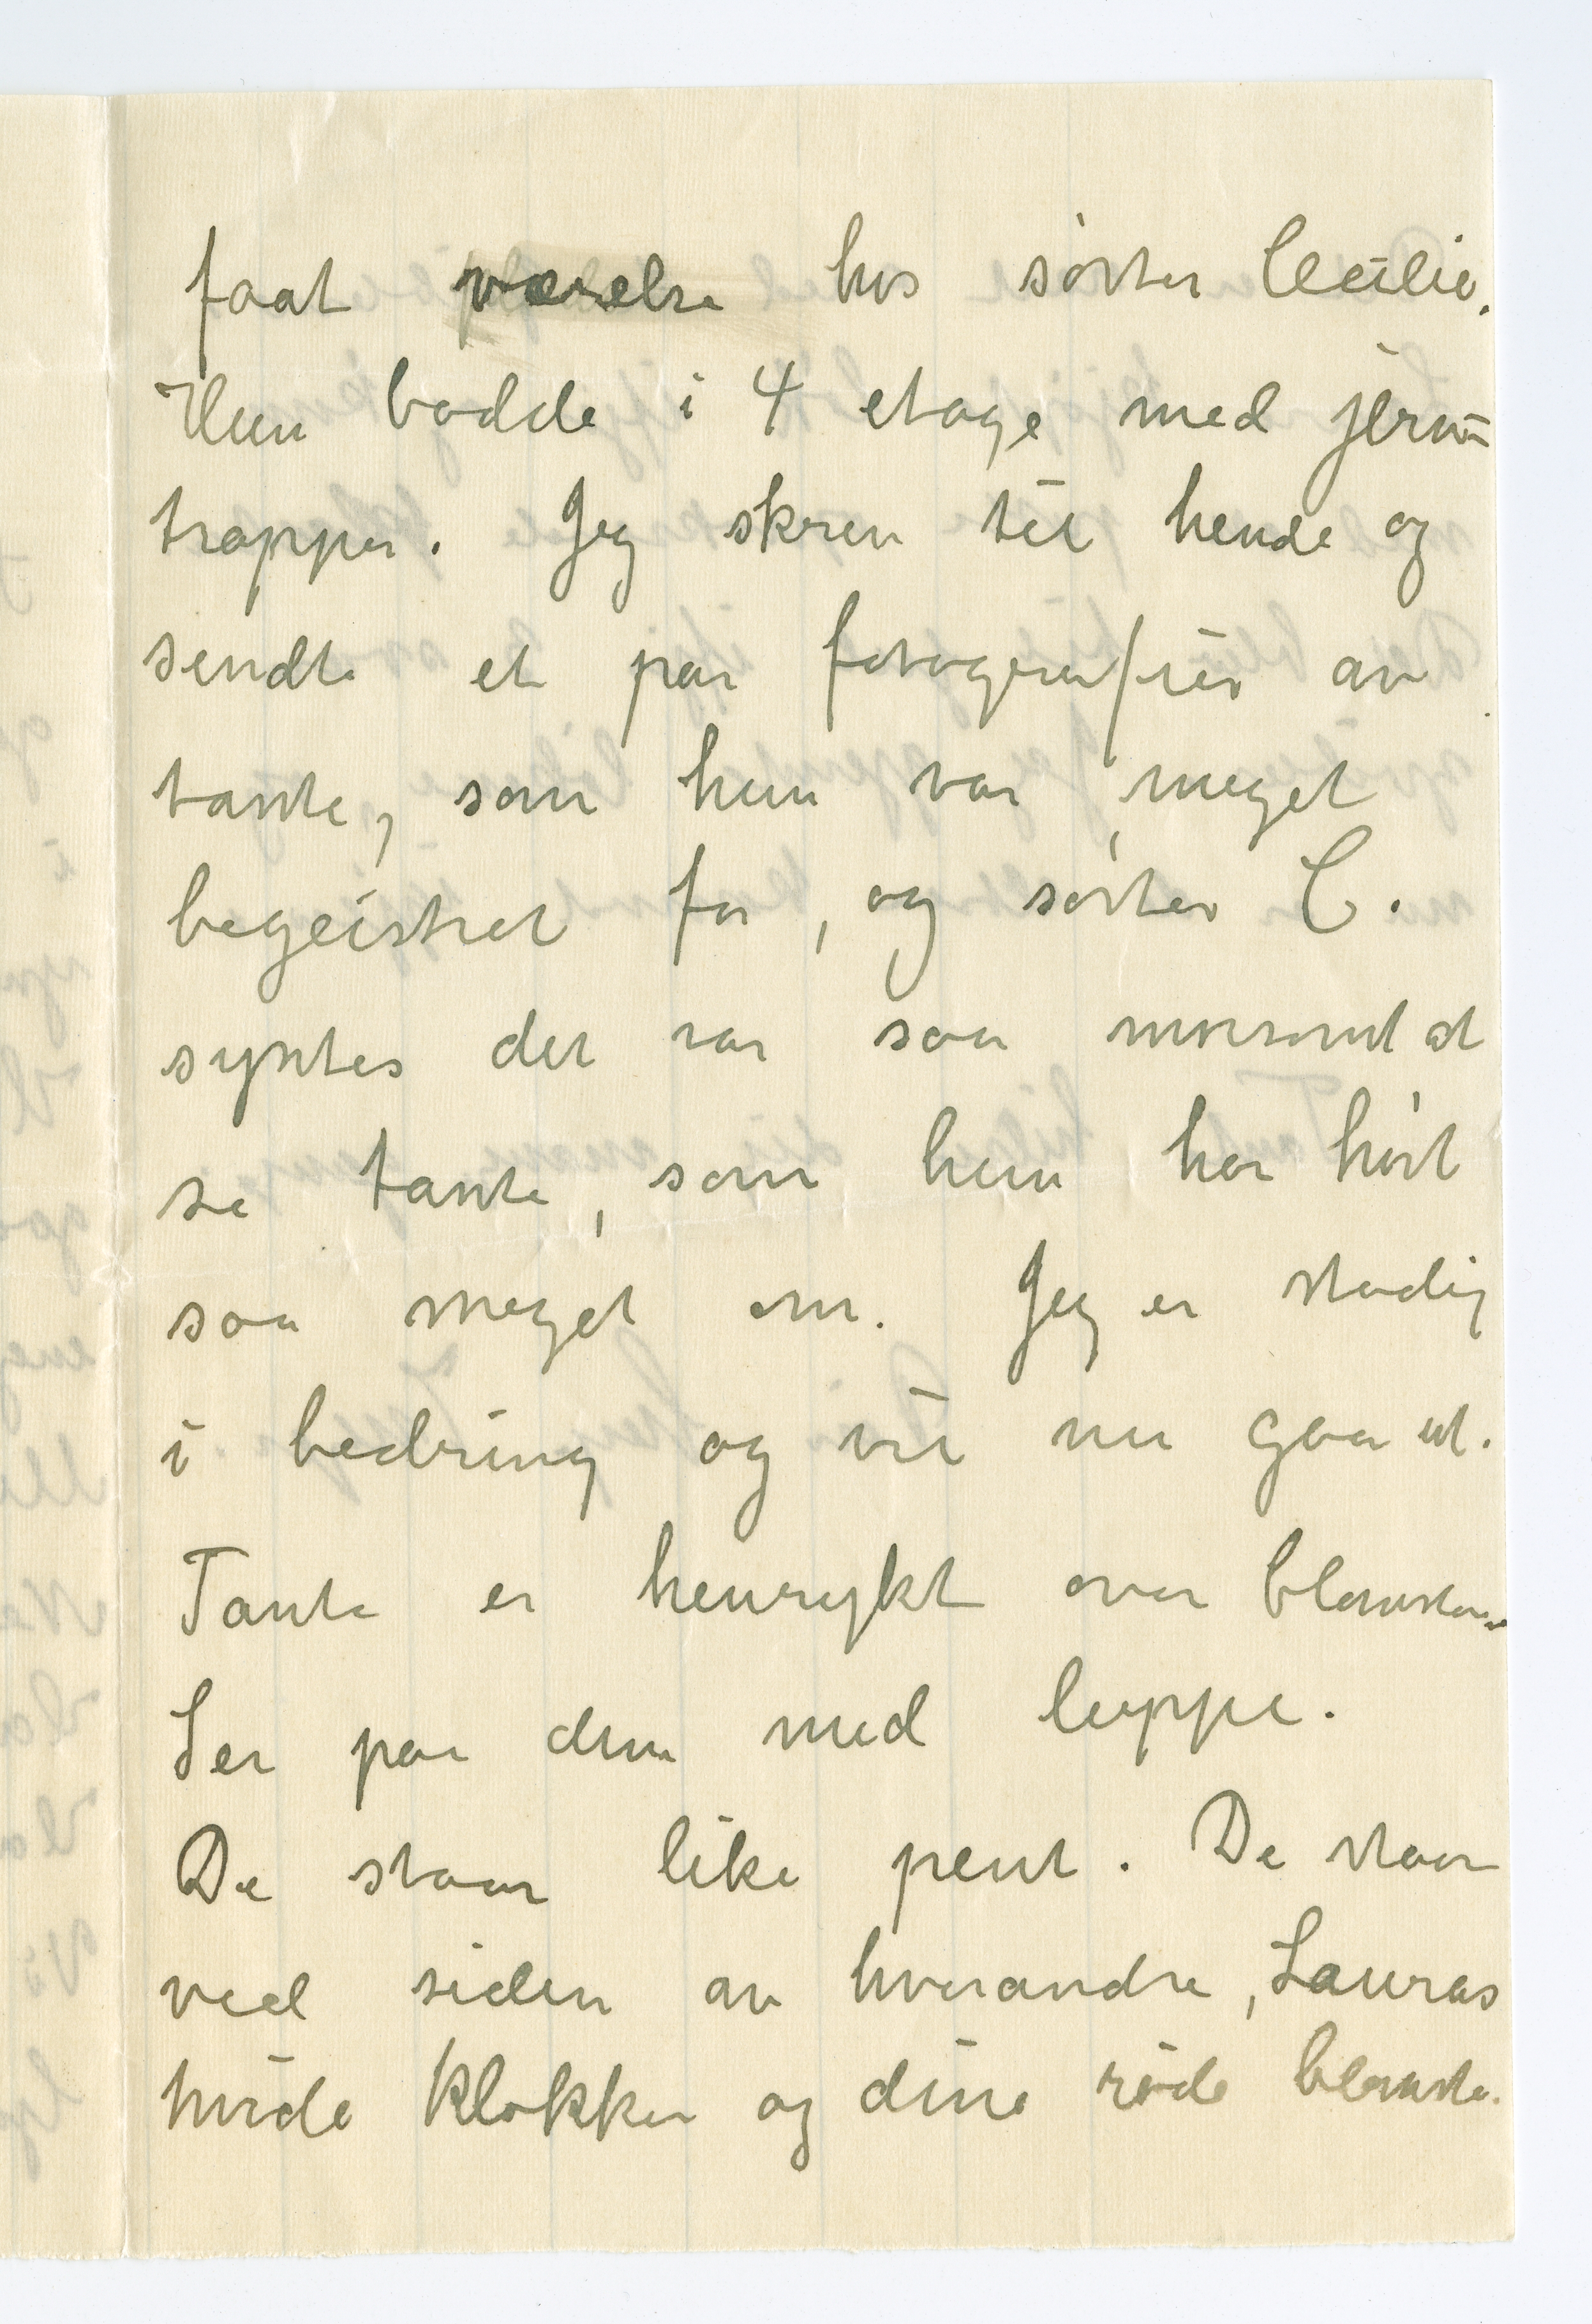 faat værelse hos søster Cecilie.
Hun bodde i 4 etage med jern-
trapper. Jeg skrev til hende og
sendte et par fotografier av
tante, som hun var meget
begeistret for, og søster C.
syntes det var saa morsomt at
se tante, som hun har hørt
saa meget om. Jeg er stadig
i bedring og vil nu gaa ut.
Tante er henrykt over blomsterne.
Ser paa dem med luppe.
De staar like pent. De staar
ved siden av hverandre, Lauras
hvide klokker og dine røde blomster.